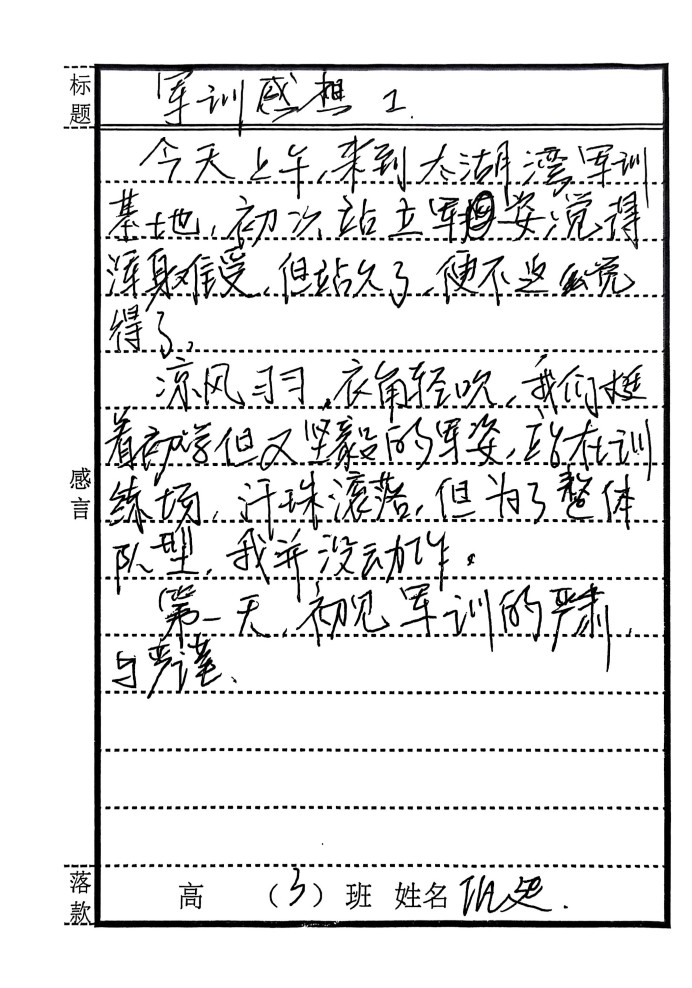 标题
军训感想 1.
今天上午,来到太湖湾军训
基地,初次站立军姿,觉得
浑身难受,但站久了,便不这么觉
得了。
凉风习习,衣角轻吹,我们挺
着初学但又坚毅的军姿,站在训
练场,汗珠滚落,但为了整体
队型,我并没动作。
第一天,初见军训的严肃
与严谨、
感言
落款
高 (3)班 姓名